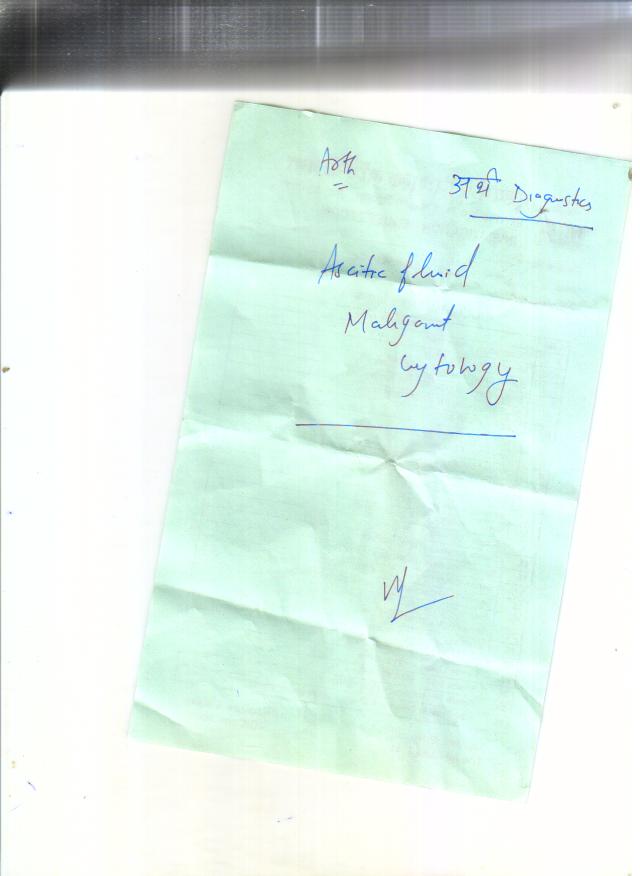 Arth
अर्थ Diagnostics
Ascitic fluid
Malignant
cytology